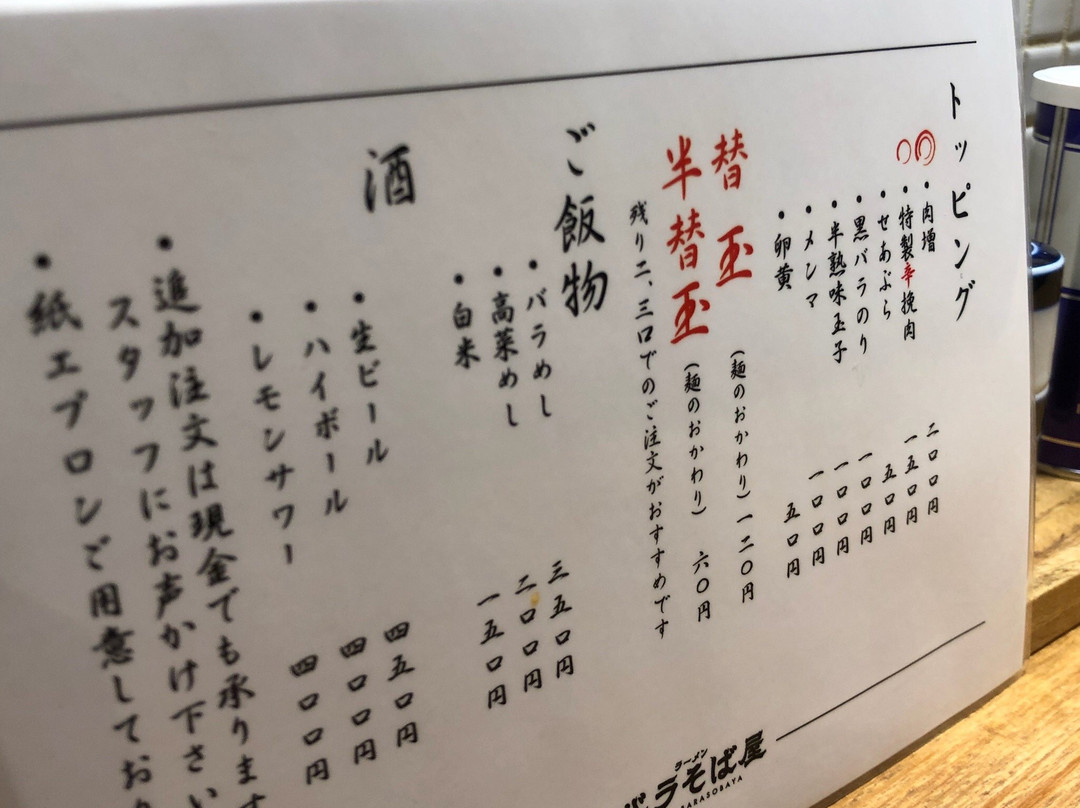 トッピング
・肉増 二〇〇円
・特製辛挽肉 一五〇円
・せあぶら 五〇円
・黒バラのり 一〇〇円
・半熟味玉子 一〇〇円
・メンマ 一〇〇円
・卵黄 五〇円
替玉(麺のおかわり)一二〇円
半替玉(麺のおかわり) 六〇円
残り二、三口でのご注文がおすすめです
ご飯物
・バラめし 三五〇円
・高菜めし 二〇〇円
・白米 一五〇円
酒
・生ビール 四五〇円
・ハイボール 四〇〇円
・レモンサワー 四〇〇円
・追加注文は現金でも承ります
スタッフにお声かけ下さい
・紙エプロンご用意しており
ラーメン
バラそば屋
BARASOBAYA